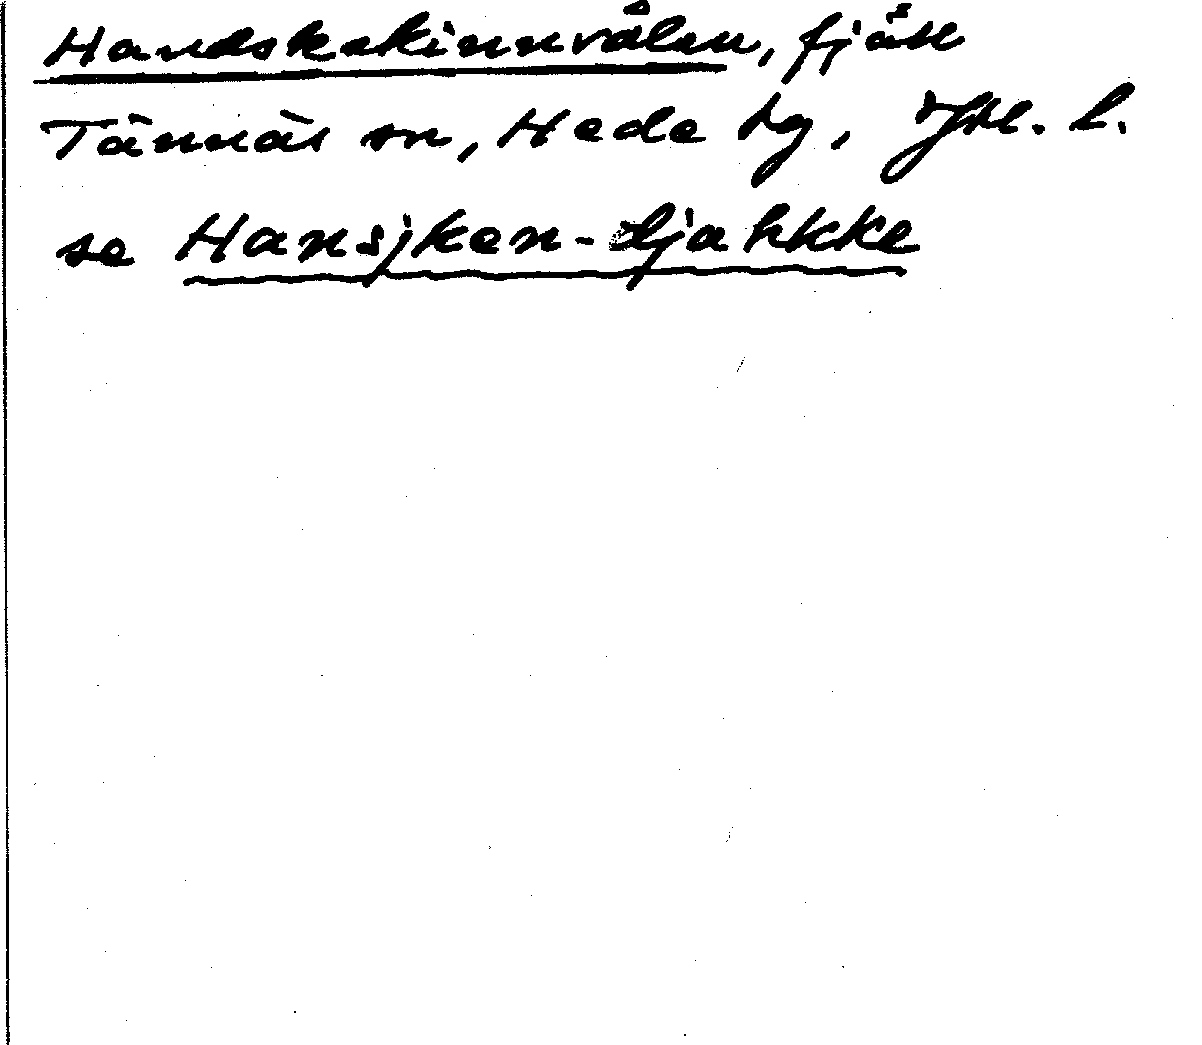 Handskskinnvålen, fjäll
Tännäs sn, Hede tg, Jtl. l.
se Hansjken-djahkke